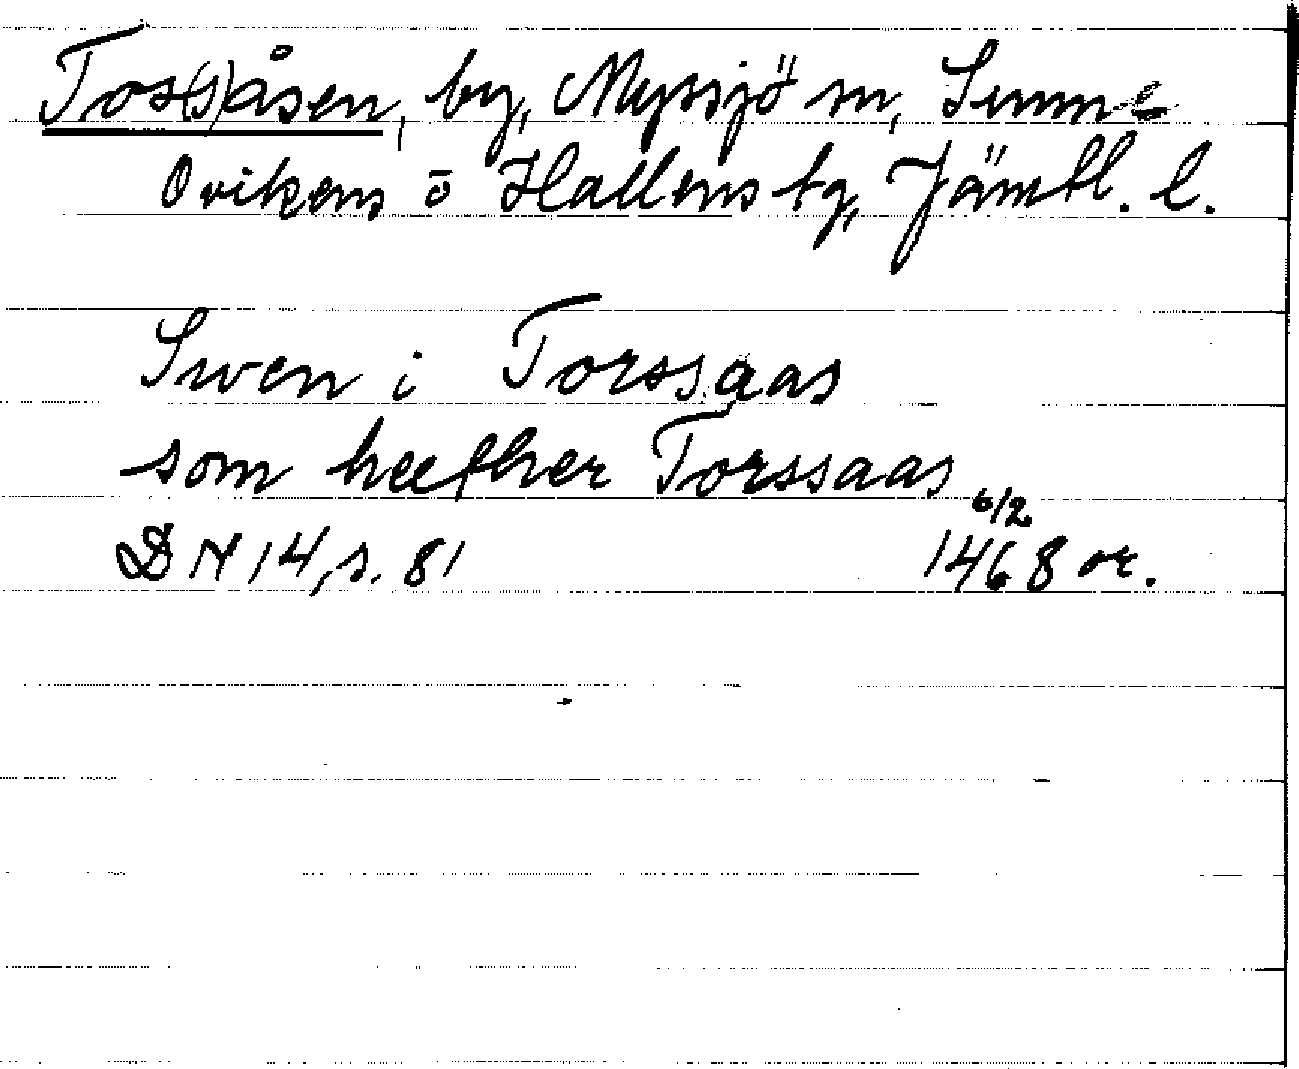 Tos(s)åsen, by, Myssjö sn, Sunne
Ovikens o Hallens tg, Jämtl. l.
Swen i Torssaas
som heether Torssaas
6/2
DN 14, s. 81 1468 or.